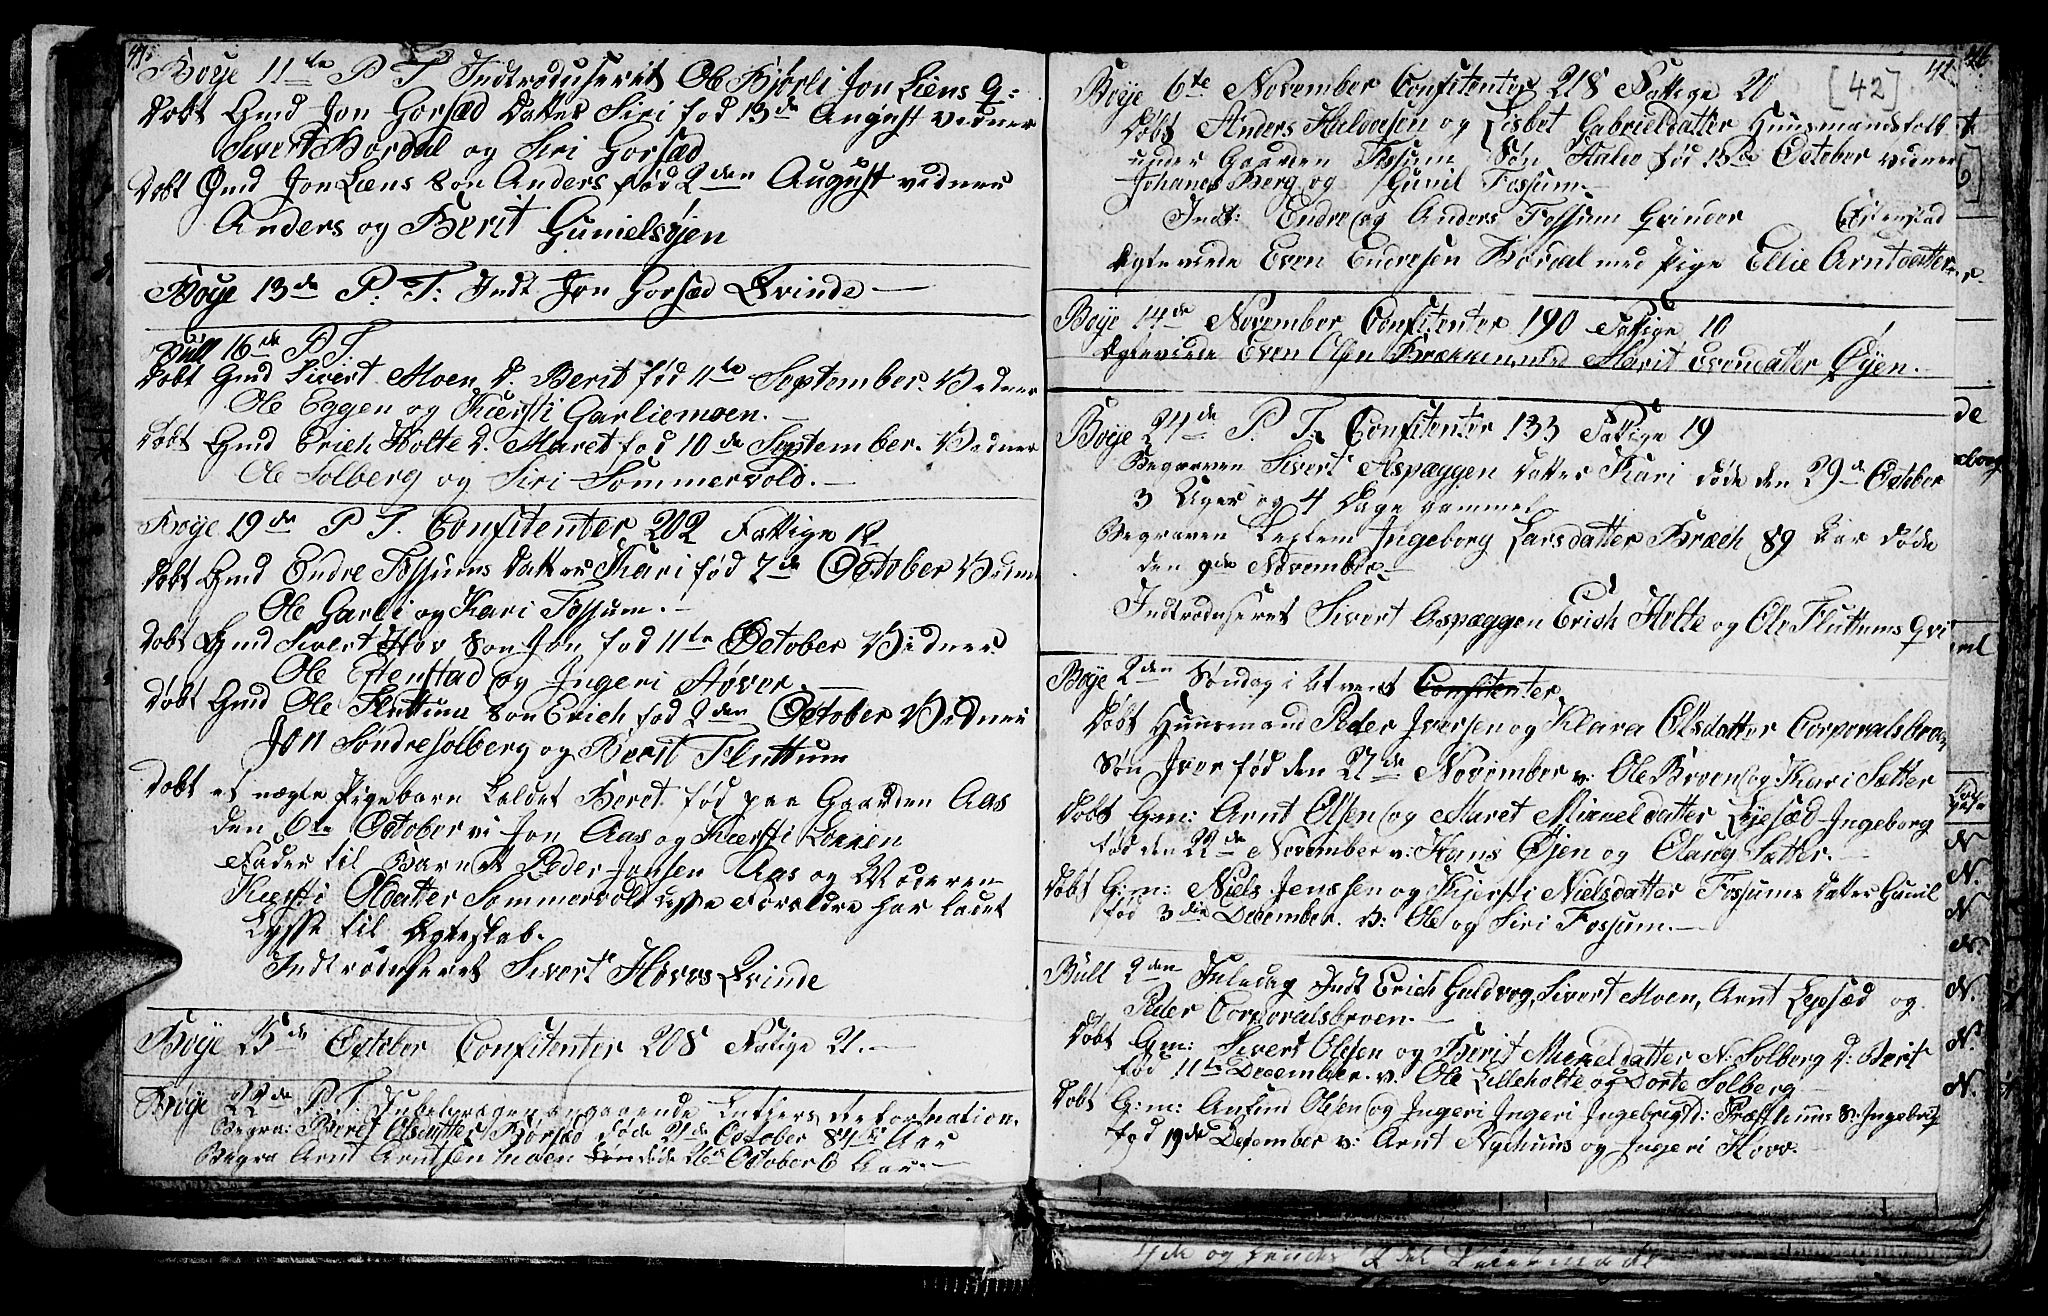 41.
Boye 11te P. T. Indtroduserit Ole Bjørli Jon Liens Q:
Døbt Gmd Jon Gorsæd Datter Siri fød 13de August vidner
Sivert Bordal og Siri Gorsæd
Døbt Gmd Jon Liens Søn Anders fød 2den August vidner
Anders og Berit Gunielsøjen
Boye 13de P: T: Indt Jon Gorsæd Qvinde
Bull 16de P T.
Døbt Gmd Sivert Moen D. Berit fød 11te September. Vidner
Ole Eggen og Kiersti Garliemoen.
Døbt Gmd Erich Holte D. Maret fød 10de September. Vidner
Ole Solberg og Siri Sommervold.
Boye 19de P T. Confitenter 202 Fattige 12
Døbt Gmd Endre Fossums Datter Kari fød 7de October Vidne
Ole Garli og Kari Fossum.
Døbt Gmd Sivert Hov Søn Jon fød 11te October Vidner
Ole Estenstad og Ingeri Høver
Døbt Gmd Ole Fluttum Søn Erich fød 2den October Vidner
Jon Søndresolberg og Berit Fluttum
Døbt et uægte Pigebarn kaldet Beret fød paa Gaarden Aas
den 6te October v: Jon Aas og Kiersti Lonien
Fader til Barnet Peder Jonsen Aas og Moderen
Kiersti Oldatter Sommervold disse Forældre har ladet
Lysse til Ægteskab.
Indtroduseret Sivert Hovos Qvinde
Boye 15de October Confitenter 208 Fattige 21.
Boye P. T. angaaende Luthers Reformation.
Begra: Berit Olsdatter Børsæd døde 21de October 84 1/2 Aar
Begra Arnt Arntsen Moen døde 26de October 6 Aar.
41. 46
[42]
Boye 6te November Confitenter 218 Fattige 20
Døbt Anders Halvorsen og Lisbet Gabrieldatter Huusmandsfolk
under Gaarden Fossum Søn Halvo fød 13de October vidner
Johanes Berg og Gunil Fossum.
Indt: Endre og Anders Fossum Qvinder Estenstad
Ægteviede Even Endresen Bordal med Pige Ellie Arntdatter
Boye 14de November Confitenter 190 Fattige 10
Ægteviede Even Olsen Brækken, med Marit Evendatter Øyen.
Boye 24de P. T. Confitenter 133 Fattige 19
Begraven Sivert Aspæggen Datter Kari døde den 29de October
3 Uger og 4 Dage gammel
Begraven Leglem Ingeborg Larsdatter Bræch 89 Aar døde
den 9de November
Indtroduseret Sivert Aspæggen Erich Holte og Ole Fluttums Qvi
Boye 2den Søndag i Atvent Confitenter
Døbt Huusmand Peder Iversen og Klara Olsdatter Corporalsbroe
Søn Iver fød den 27de November v: Ole Broen og Kari Sætter
Døbt G:m: Arnt Olsen og Maret Mikkeldatter Lyesæd Ingeborg
fød den 22de November v: Hans Øjen og Olaug Sætter.
Døbt G:m: Niels Jenssen og Kjersti Nielsdatter Fossums Datter Gunil
fød 3die December. V: Ole og Siri Fossum.
Bull 2den Juledag Indt Erich Guldvog, Sivert Moen, Arnt Lyesæd og
Peder Corporalsbroen.
Døbt G:m: Sivert Olsen og Berit Mikeldatter N: Solberg D: Berit
fød 11te December. v: Ole Lilleholte og Dorte Solberg
Døbt G:m: Amund Olsen og Ingeri Ingeri Ingebrigtd: Præsthuus S: Ingebrigt
fød 19de December v: Arnt Nyehuus og Ingeri Hovo.
N
N.
N
N.
N.
N.
N.